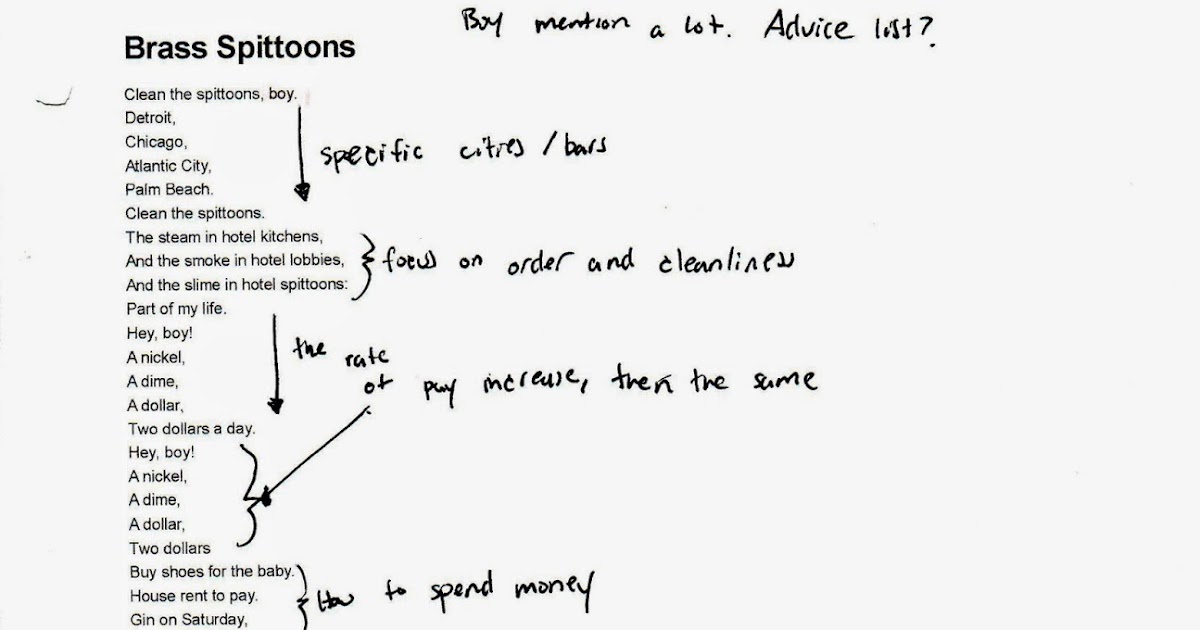 Boy mention a lot. Advice list?
Brass Spittoons
Clean the spittoons, boy.
Detroit,
Chicago,
specific cities / bars
Atlantic City,
Palm Beach.
Clean the spittoons.
The steam in hotel kitchens,
And the smoke in hotel lobbies,
focus on order and cleanliness
And the slime in hotel spittoons:
Part of my life.
Hey, boy!
A nickel,
the rate
A dime,
of pay increase, then the same
A dollar,
Two dollars a day.
Hey, boy!
A nickel,
A dime,
A dollar,
Two dollars
Buy shoes for the baby.
House rent to pay.
How to spend money
Gin on Saturday,